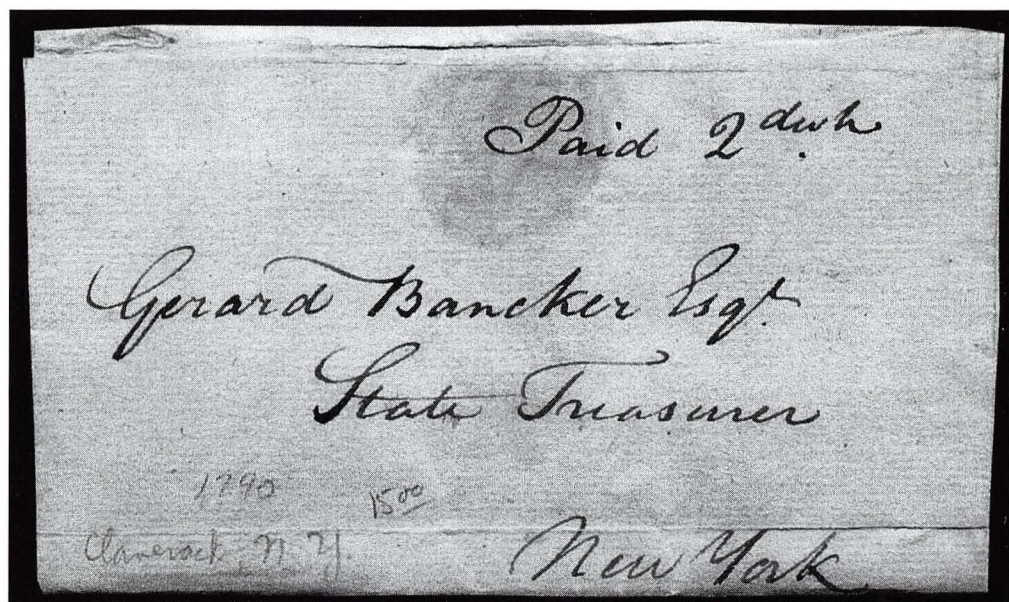 Paid 2 dwt
Gerard Bancker Esqr.
State Treasurer
1790
15 00
Claverack, N. Y.
New York